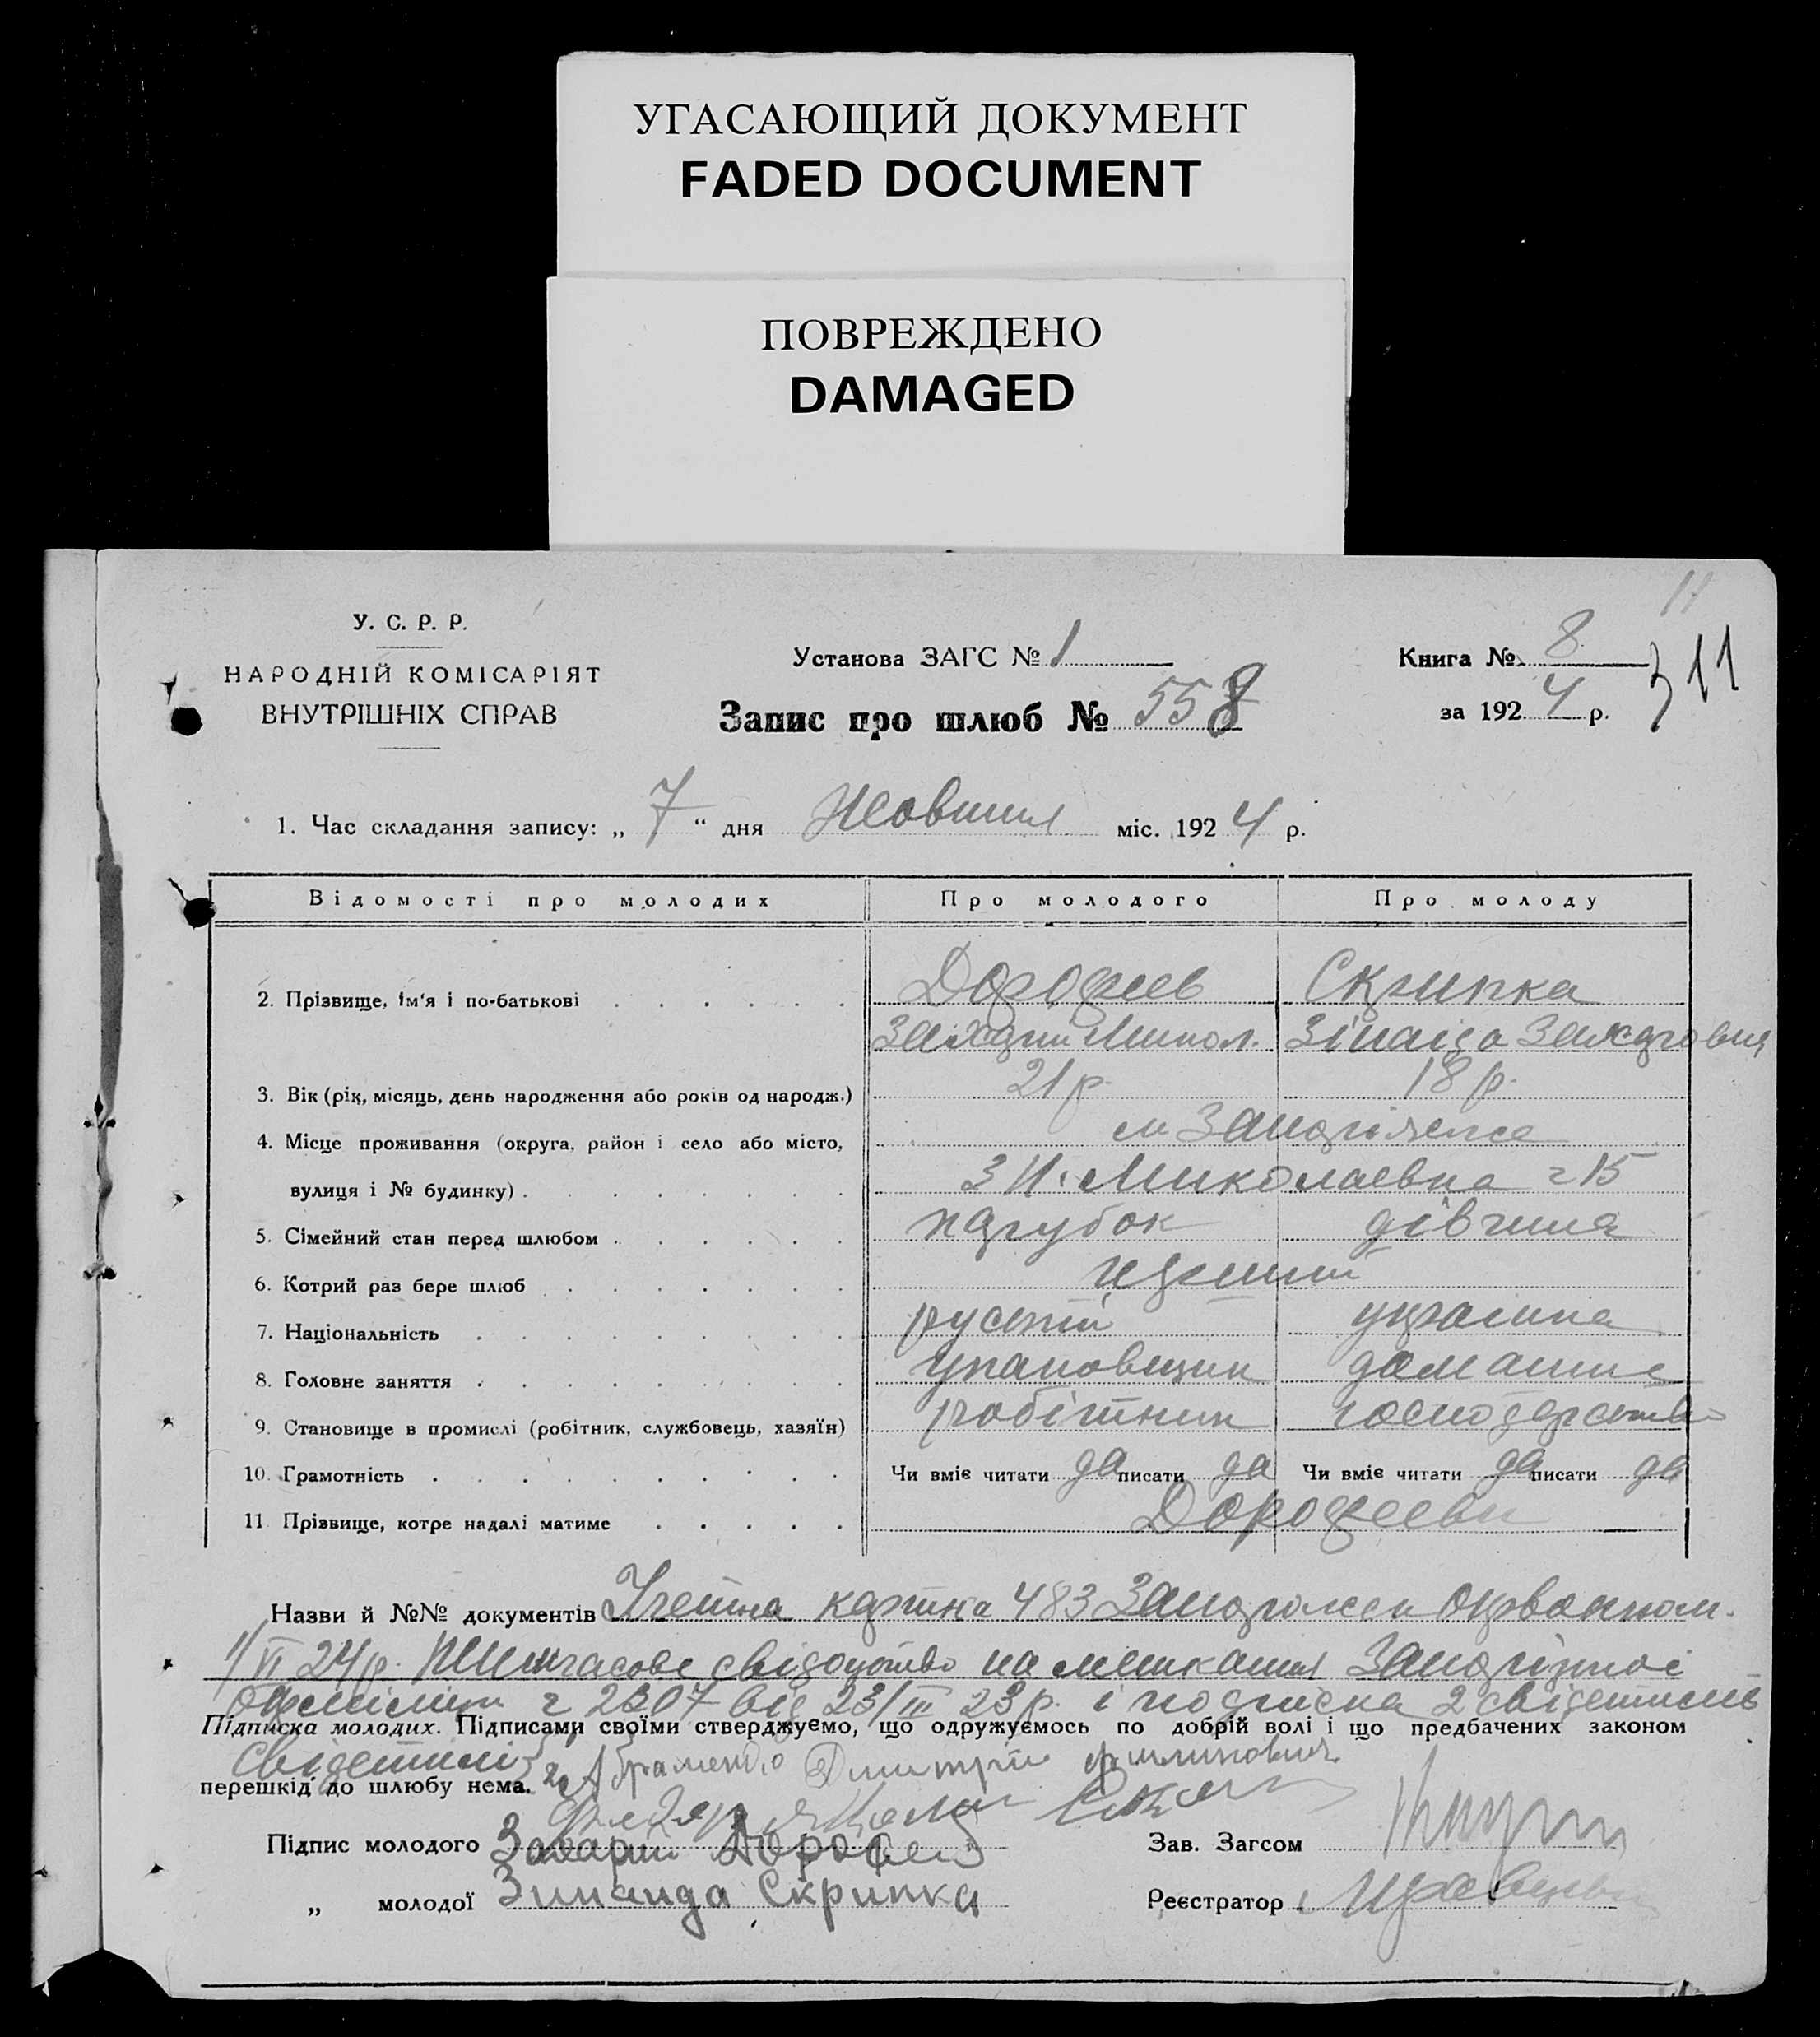 УГАСАЮЩИЙ ДОКУМЕНТ
FADED DOCUMENT
ПОВРЕЖДЕНО
DAMAGED
11
У. С. Р. Р.
НАРОДНІЙ КОМІСАРІЯТ
ВНУТРІШНІХ СПРАВ
Установа ЗАГС № 1
Запис про шлюб № 558
Книга № 8
311
за 1924 р.
1. Час складання запису: „ 7 “ дня Жовтня міс. 1924 р.
Відомості про молодих Про молодого Про молоду
2. Прізвище, ім'я і по-батькові Дорофеев Скрипка
Захарий Микол. Зінаіда Захаровна
3. Вік (рік, місяць, день народження або років од народж.) 21 р. 18 р.
4. Місце проживання (округа, район і село або місто, м Запоріжже
вулиця і № будинку) Миколаевна ч 15
5. Сімейний стан перед шлюбом парубок дівчина
6. Котрий раз бере шлюб перший
7. Національність руский украінка
8. Головне заняття упаковщик домашне
9. Становище в промислі (робітник, службовець, хазяїн) робітник господарство
10. Грамотність Чи вміє читати да писати да Чи вміє читати да писати да
11. Прізвище, котре надалі матиме Дорофееви
Назви й №№ документів Учетна картка 483 Запорожск Окрвоенком.
1/VI 24 р. Тимчасове свідоцтво на мешкання Запорізькоі
ч 2307 від 23/III 23 р. і подписка 2 свідетилів
Підписка молодих. Підписами своїми стверджуємо, що одружуємось по добрій волі і що предбачених законом
свідетилі Абраменко Дмитрий Филипович
перешкід до шлюбу нема.
Підпис молодого Захарий Дорофеев Зав. Загсом
„ молодої Зинаида Скрипка Реєстратор